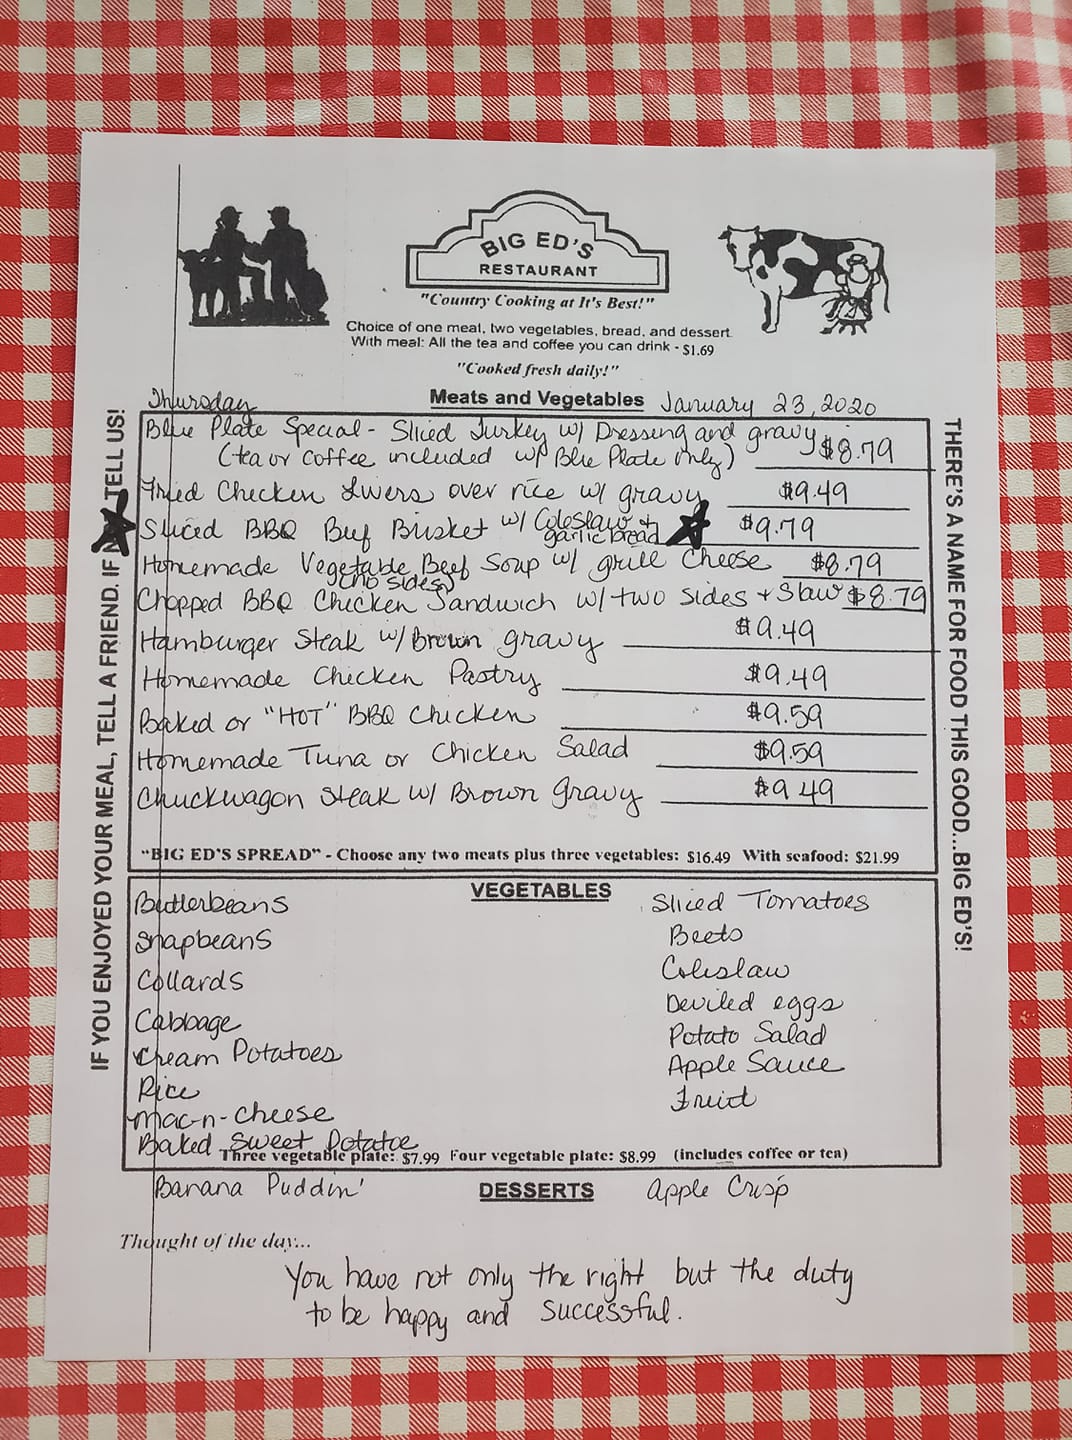 BIG ED'S
RESTAURANT
"Country Cooking at It's Best!"
Choice of one meal, two vegetables, bread, and dessert.
With meal: All the tea and coffee you can drink - $1.69
"Cooked fresh daily!"
Thursday Meats and Vegetables January 23, 2020
Blue Plate Special - Sliced Turkey w/ Dressing and gravy $8.79
(tea or coffee included w/ Blue Plate only)
Fried Chicken Livers over rice w/ gravy $9.49
Sliced BBQ Beef Brisket w/ Coleslaw + garlic bread $9.79
Homemade Vegetable Beef Soup w/ grill Cheese $8.79
(no sides)
Chopped BBQ Chicken Sandwich w/ two sides + Slaw $8.79
Hamburger Steak w/ Brown gravy $9.49
Homemade Chicken Pastry $9.49
Baked or "HOT" BBQ Chicken $9.59
Homemade Tuna or Chicken Salad $9.59
Chuckwagon Steak w/ Brown gravy $9.49
"BIG ED'S SPREAD" - Choose any two meats plus three vegetables: $16.49 With seafood: $21.99
VEGETABLES
Butterbeans
Snapbeans
Collards
Cabbage
Cream Potatoes
Rice
Mac-n-Cheese
Baked Sweet Potatoe
Sliced Tomatoes
Beets
Coleslaw
Deviled eggs
Potato Salad
Apple Sauce
Fruit
Three vegetable plate: $7.99 Four vegetable plate: $8.99 (includes coffee or tea)
Banana Puddin' DESSERTS Apple Crisp
Thought of the day...
You have not only the right but the duty
to be happy and successful.
IF YOU ENJOYED YOUR MEAL, TELL A FRIEND. IF TELL US!
THERE'S A NAME FOR FOOD THIS GOOD...BIG ED'S!